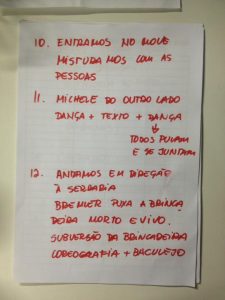 10. ENTRAMOS NO MOVE
MISTURAMOS COM AS
PESSOAS
11. MICHELE DO OUTRO LADO
DANÇA + TEXTO + DANÇA
TODOS PULAM
E SE JUNTAM
12. ANDAMOS EM DIREÇÃO
À SERRARIA
BREMMER PUXA A BRINCA
DEIRA MORTO E VIVO.
SUBVERSÃO DA BRINCADEIRA
COREOGRAFIA + BACULEJO